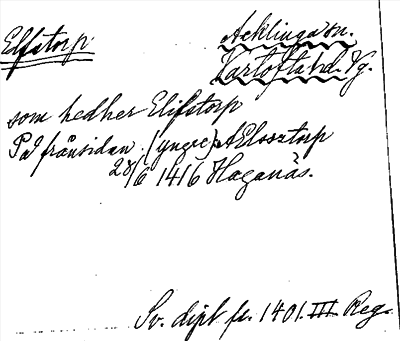 Elfstorp
Acklinga sn.
Kartofta hd. Vg.
som hedher Elifstorp
På frånsidan (yngre) AElossztorp
28/6 1416 Haganäs.
Sv. dipl fr. 1401. III Reg.